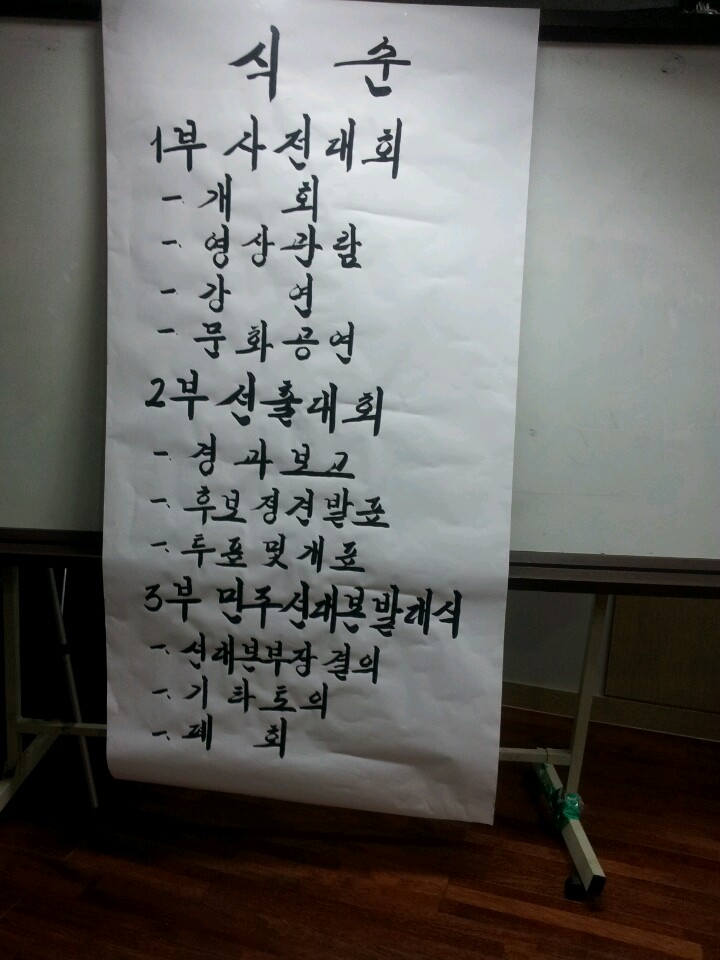 식 순
1부 사전대회
- 개 회
- 영상관람
- 강 연
- 문화공연
2부 선출대회
- 경과보고
- 후보정견발표
- 투표및개표
3부 민주선대본발대식
- 선대본부장결의
- 기타토의
- 폐 회